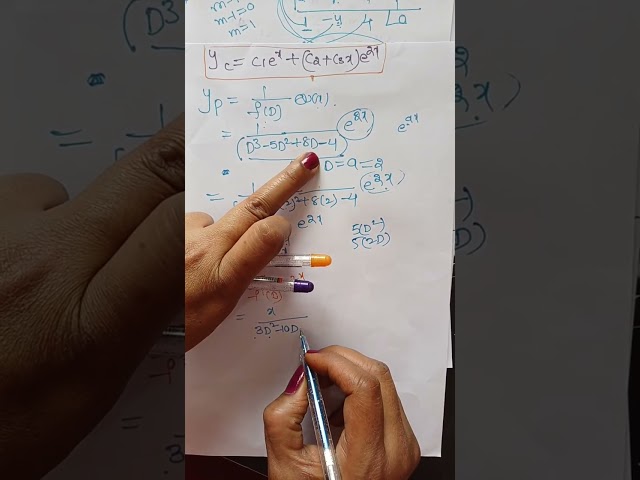 m-1=0
m=1
1 -4 4 0
y_c = c₁e^x + (c₂+c₃x)e^{2x}
y_p = 1/f(D)
= 1/(D³-5D²+8D-4) e^{2x} e^{ax}
D=a=2
= 1 +8(2)-4 e^{2x}
e^{2x} 5(D²)
5(2D)
f'(D)
= x/3D²-10D